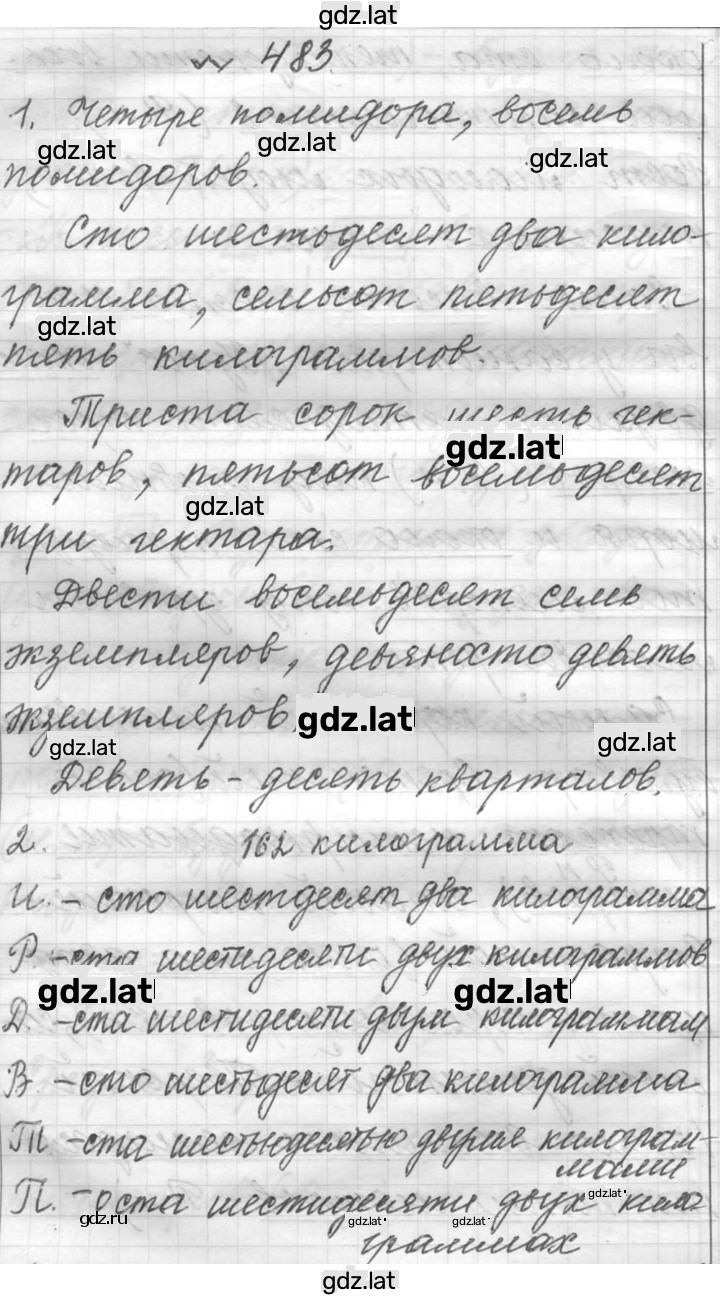 gdz.lat
№ 483.
1. Четыре помидора, восемь
gdz.lat gdz.lat gdz.lat
помидоров.
Сто шестьдесят два кило-
грамма, семьсот пятьдесят
gdz.lat
пять килограммов.
Триста сорок шесть гек-
gdz.lat
таров, пятьсот восемьдесят
gdz.lat
три гектара.
Двести восемьдесят семь
экземпляров, девяносто девять
экземпляров. gdz.lat
gdz.lat gdz.lat
Девять - десять кварталов.
2. 162 килограмма
И. - сто шестдесят два килограмма
Р. - ста шестидесяти двух килограммов
gdz.lat gdz.lat
Д. - ста шестидесяти двум килограммам
В. - сто шестьдесят два килограмма
Т. - ста шестьюдесятью двумя килограм-
мами
П. - о ста шестидесяти двух кило
gdz.lat
gdz.ru gdz.lat gdz.lat
граммах
gdz.lat